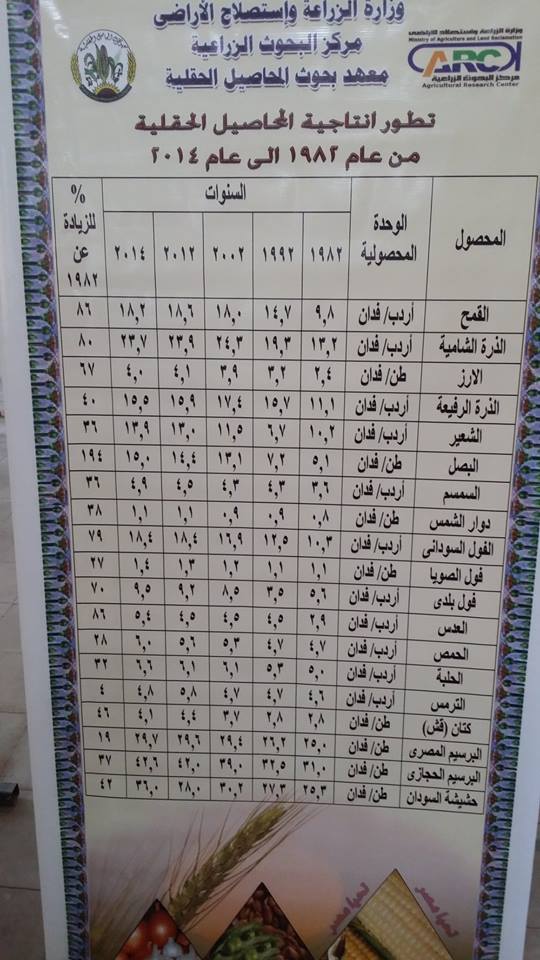 وزارة الزراعة وإستصلاح الأراضى
مركز البحوث الزراعية
معهد بحوث المحاصيل الحقلية
وزارة الزراعة وإستصلاح الأراضى
Ministry of Agriculture and Land Reclamation
ARC
مركز البحوث الزراعية
Agricultural Research Center
تطور انتاجية المحاصيل الحقلية
من عام ١٩٨٢ الى عام ٢٠١٤
المحصول الوحدة المحصولية السنوات % للزيادة عن ١٩٨٢
١٩٨٢ ١٩٩٢ ٢٠٠٢ ٢٠١٢ ٢٠١٤
القمح أردب/ فدان ٩,٨ ١٤,٧ ١٨,٠ ١٨,٦ ١٨,٢ ٨٦
الذرة الشامية أردب/ فدان ١٣,٢ ١٩,٣ ٢٤,٣ ٢٣,٩ ٢٣,٧ ٨٠
الارز طن/ فدان ٢,٤ ٣,٢ ٣,٩ ٤,١ ٤,٠ ٦٧
الذرة الرفيعة أردب/ فدان ١١,١ ١٥,٧ ١٧,٤ ١٥,٩ ١٥,٥ ٤٠
الشعير أردب/ فدان ١٠,٢ ٦,٧ ١١,٥ ١٣,٠ ١٣,٩ ٣٦
البصل طن/ فدان ٥,١ ٧,٢ ١٣,١ ١٤,٤ ١٥,٠ ١٩٤
السمسم أردب/ فدان ٣,٦ ٤,٣ ٤,٣ ٤,٥ ٤,٩ ٣٦
دوار الشمس طن/ فدان ٠,٨ ٠,٩ ٠,٩ ١,١ ١,١ ٣٨
الفول السودانى أردب/ فدان ١٠,٣ ١٢,٥ ١٦,٩ ١٨,٤ ١٨,٤ ٧٩
فول الصويا طن/ فدان ١,١ ١,١ ١,٢ ١,٣ ١,٤ ٢٧
فول بلدى أردب/ فدان ٥,٦ ٣,٥ ٨,٥ ٩,٢ ٩,٥ ٧٠
العدس أردب/ فدان ٢,٩ ٤,٥ ٤,٥ ٤,٥ ٥,٤ ٨٦
الحمص أردب/ فدان ٤,٧ ٤,٧ ٥,٣ ٥,٦ ٦,٠ ٢٨
الحلبة أردب/ فدان ٥,٠ ٥,٣ ٦,١ ٦,١ ٦,٦ ٣٢
الترمس أردب/ فدان ٤,٦ ٤,٧ ٤,٧ ٥,٨ ٤,٨ ٤
كتان (قش) طن/ فدان ٢,٨ ٢,٨ ٣,٧ ٤,٤ ٤,١ ٤٦
البرسيم المصرى طن/ فدان ٢٥,٠ ٢٦,٢ ٢٩,٤ ٢٩,٦ ٢٩,٧ ١٩
البرسيم الحجازى طن/ فدان ٣١,٠ ٣٢,٥ ٣٩,٠ ٤٢,٠ ٤٢,٦ ٣٧
حشيشة السودان طن/ فدان ٢٥,٣ ٢٧,٣ ٣٠,٢ ٢٨,٠ ٣٦,٠ ٤٢
تحيا مصر
تحيا مصر